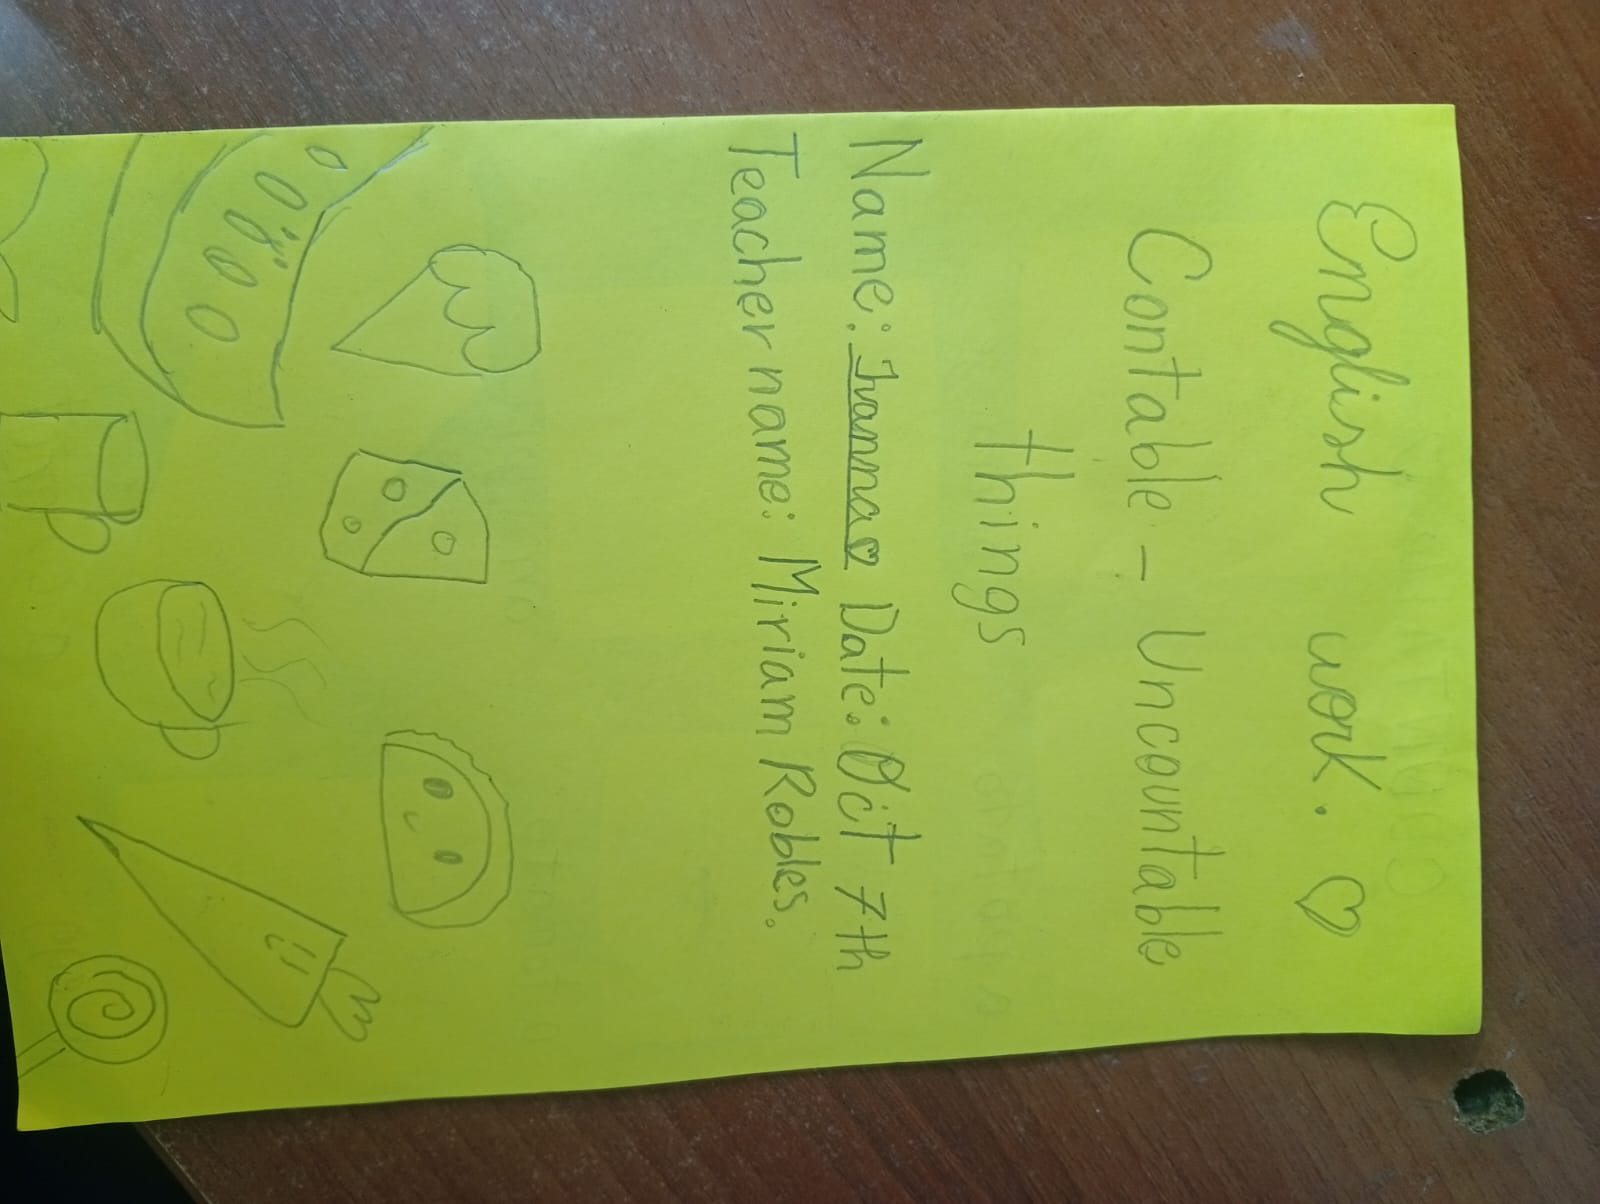 English work. ♡
Contable - Uncountable
things
Name: Ivanna♡ Date: Oct 7th
Teacher name: Miriam Robles.